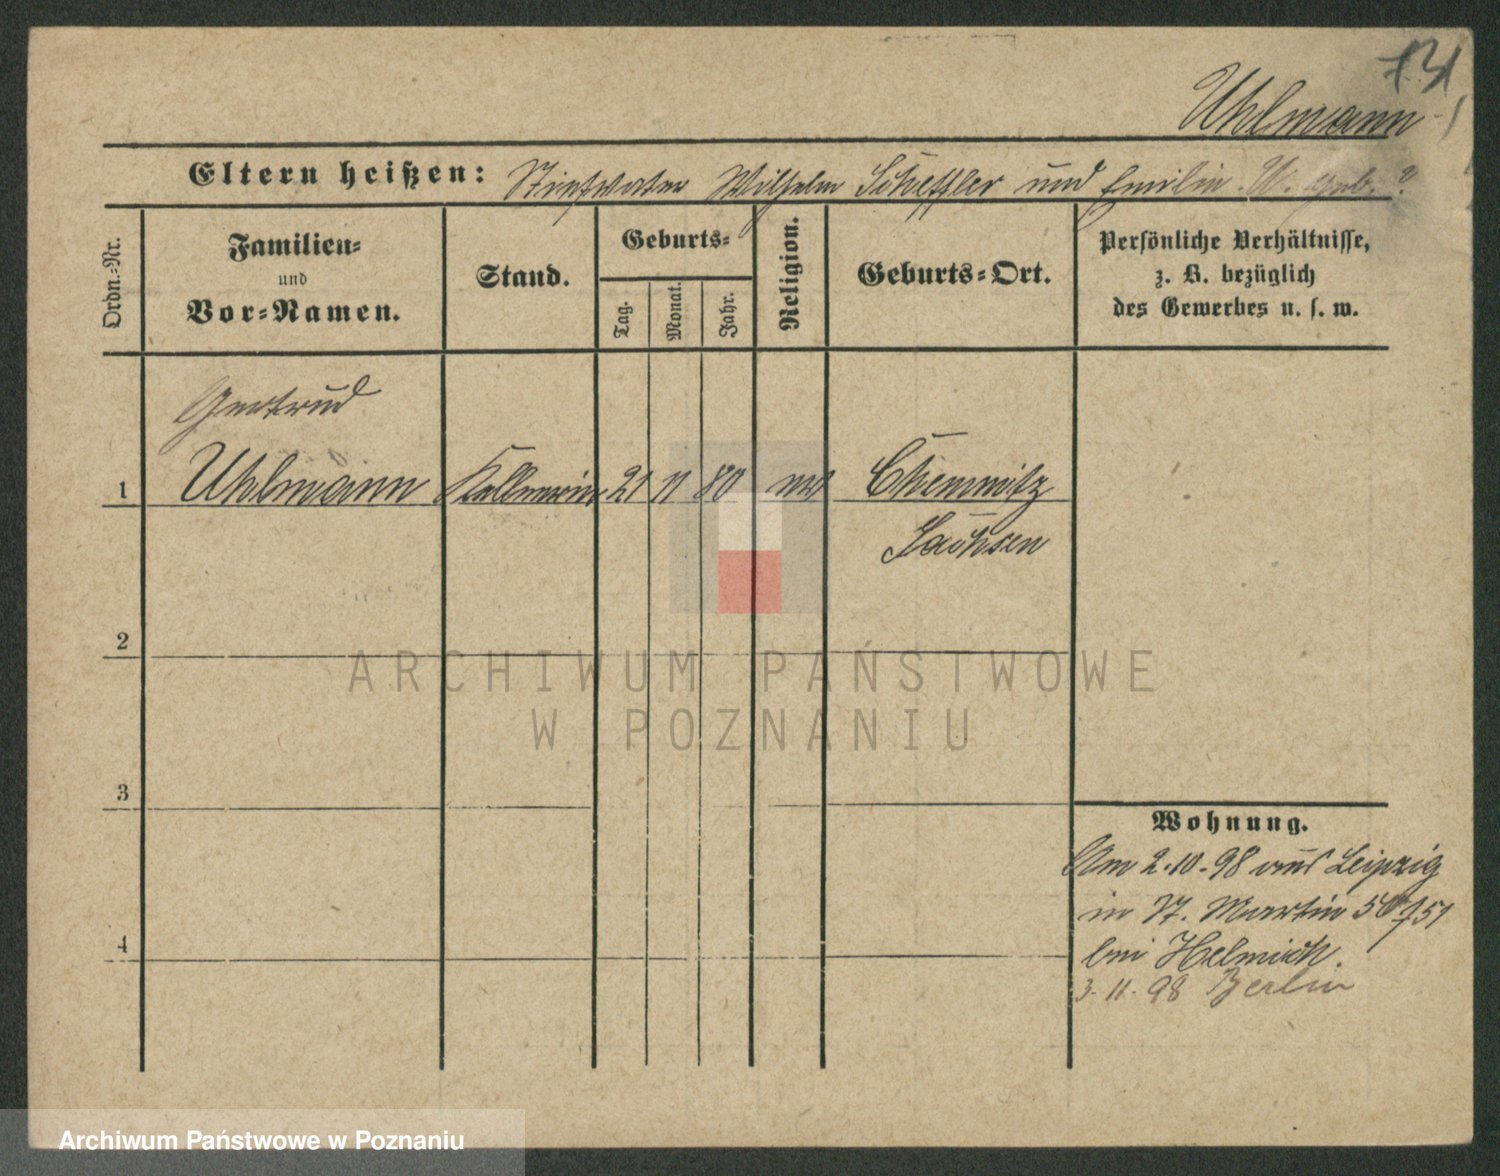 Uhlmann
Eltern heißen: Stiefvater Wilhelm Scheffler und Emilie U. geb. ?
Ordn.-Nr.
Familien-
und
Vor-Namen.
Stand.
Geburts-
Tag.
Monat.
Jahr.
Religion.
Geburts-Ort.
Persönliche Verhältnisse,
z. B. bezüglich
des Gewerbes u. s. w.
Gertrud
1 Uhlmann Kellnerin 21 11 80 ev Chemnitz
Sachsen
2
3
4
Wohnung.
Am 2.10.98 aus Leipzig
in St. Martin 50/51
bei Helmich.
3.11.98 Berlin
ARCHIWUM PAŃSTWOWE
W POZNANIU
Archiwum Państwowe w Poznaniu